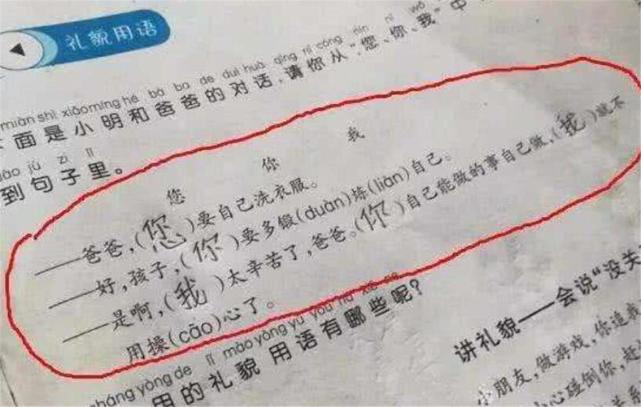 礼貌用语
miàn shì xiǎo míng hé bà ba de duì huà, qǐng nǐ cóng nín nǐ wǒ
面是小明和爸爸的对话,请你从“您、你、我”中
dào jù zi lǐ
到句子里。
您 你 我
——爸爸,(您)要自己洗衣服。
——好,孩子,(你)要多锻(duàn)炼(liàn)自己。
——是啊,(我)太辛苦了,爸爸。(你)自己能做的事自己做,(我)就不
用操(cāo)心了。
cháng yòng de lǐ mào yòng yǔ yǒu nǎ xiē ne
用的礼貌用语有哪些呢?
讲礼貌——会说“没关
小朋友,做游戏,你追
心碰倒你,